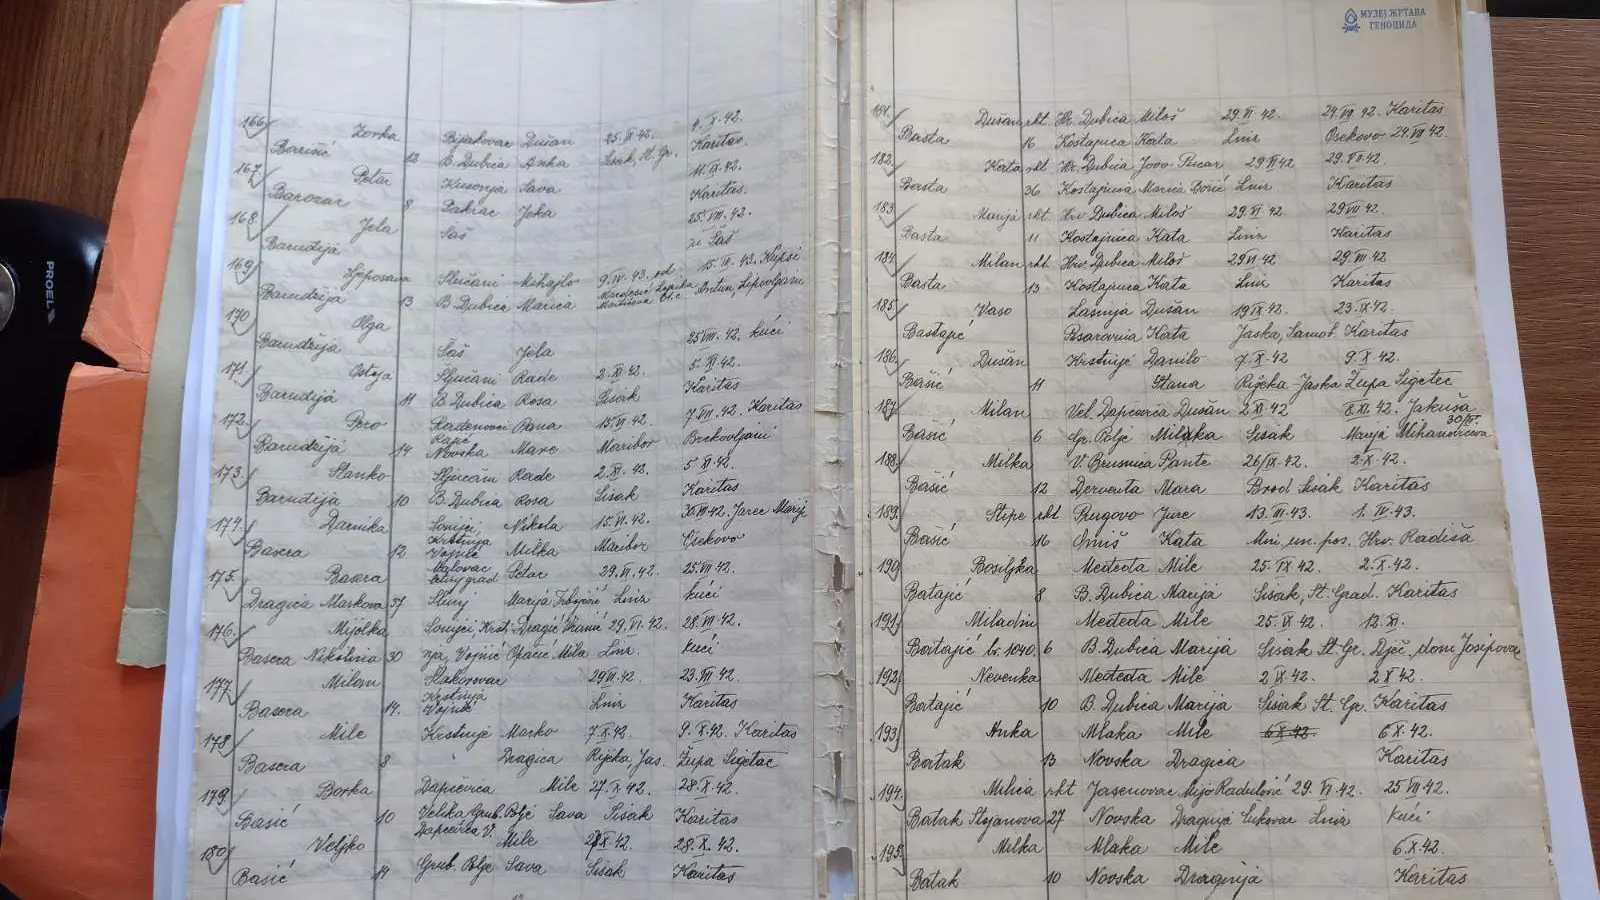 166. Zorka Bijakovac Dušan 25.VI.42. 9.X.42.
Barišić 12 B. Dubica Anka Sisak, St. Gr. Karitas
167. Petar Kusonja Sava 11.IX.42.
Barovar 8 Pakrac Joka Karitas.
168. Jela Šaš 25.VIII.42.
Barudžija za Šaš
169. Ljeposava Slučani Mihajlo 9.IV.43. od 15.II.43. Kupsi
Barudžija 13 B. Dubica Marica Antun, Lipovljani
170 Olga
Barudžija Šaš Jela 25.VIII.42. kući
171. Ostoja Slučani Rade 2.XI.42. 5.XI.42.
Barudžija 11 B. Dubica Rosa Sisak Karitas
172. Pero Radenovci Pana 15.VI.42. 7.VII.42. Karitas
Barudžija 14 Novska Mare Maribor Brckovljani
173. Stanko Slučani Rade 2.XI.42. 5.XI.42.
Barudžija 10 B. Dubica Rosa Sisak Karitas
174. Darinka Nikola 15.VI.42. 30.VII.42. Jarec Marij
Krstinja
Basera 12 Vojnić Milka Maribor Osekovo
175. Basera Petar 29.VI.42. 25.VII.42.
Dragica Markova 37 Slunj Marija Trbojević Linz kući
176. Mijolka Krst. Dragić 29.VI.42. 28.VII.42.
Basera Nikolina 30 nja, Vojnić Opačić Mila Linz. kući
177 Milan 29VI.42. 23.VII.42.
Krstinja
Basera 14. Vojnić Linz Karitas
178 Mile Krstinje Marko 7.X.42. 9.X.42. Karitas
Basera 8 Dragica Rijeka, Jas. Župa Sigetac
179 Borka Dapčevica Mile 27.X.42. 28.X.42.
Basić 10 Velika, Grub. Polje Sava Sisak Karitas
180 Veljko Dapčevica V. Mile X.42 28.X.42.
Basić 14 Grub. Polje Sava Sisak Karitas
МУЗЕЈ ЖРТАВА
ГЕНОЦИДА
181. Dušan rkt Hr. Dubica Miloš 29.VI.42. 24.VII.42. Karitas
Basta 16 Kostajnica Kata Linz Osekovo 24.VII.42.
182. Kata rkt Hr. Dubica Jovo Pucar 29VI42. 29.VII.42.
Basta 36 Kostajnica Marica Borić Linz Karitas
183. Marija rkt Hrv Dubica Miloš 29.VI.42 29VII.42.
Basta 11 Kostajnica Kata Linz Karitas
184. Milan rkt Hrv. Dubica Miloš 29VI42 29VII.42
Basta 13 Kostajnica Kata Linz Karitas
185. Vaso Lasinja Dušan 19IX.42 23.IX.42.
Bastajić Pisarovina Kata Jaska, Samob. Karitas
186. Dušan Krstinje Danilo 7.X.42 9.X.42.
Bašić 11 Stana Rijeka-Jaska Župa Sigetec
187. Milan Vel. Dapčevica Dušan 2XI.42 8.XI.42. Jakuša
30/IV.
Bašić 6 Gr. Polje Milka Sisak Marija Mihanovićeva
188. Milka V. Brusnica Pante 26/IX.42. 2.X.42.
Bašić 12 Derventa Mara Brod Sisak Karitas
189. Stipe rkt Prugovo Jure 13.III.43. 1.IV.43.
Bašić 16 Omiš Kata Min. un. pos. Hrv. Radiša
190. Bosiljka Međeđa Mile 25.IX.42. 2.X.42.
Batajić 8 B. Dubica Marija Sisak, St. Grad. Karitas
191. Miladin Međeđa Mile 25.IX.42 12.XI.
Batajić br. 1040. 6 B. Dubica Marija Sisak St. Gr. Dječ. dom Josipovac
192. Nevenka Međeđa Mile 2IX.42. 2X42.
Batajić 10 B. Dubica Marija Sisak St. Gr. Karitas
193. Anka Mlaka Mile 6X.42. 6X.42.
Batak 13 Novska Dragica Karitas
194. Milica rkt Jasenovac Mijo Radulović 29.VI.42. 25VII.42.
Batak Stojanova 27 Novska Draginja Linz kući
195. Milka Mlaka Mile 6.X.42.
Batak 10 Novska Draginja Karitas
PROEL